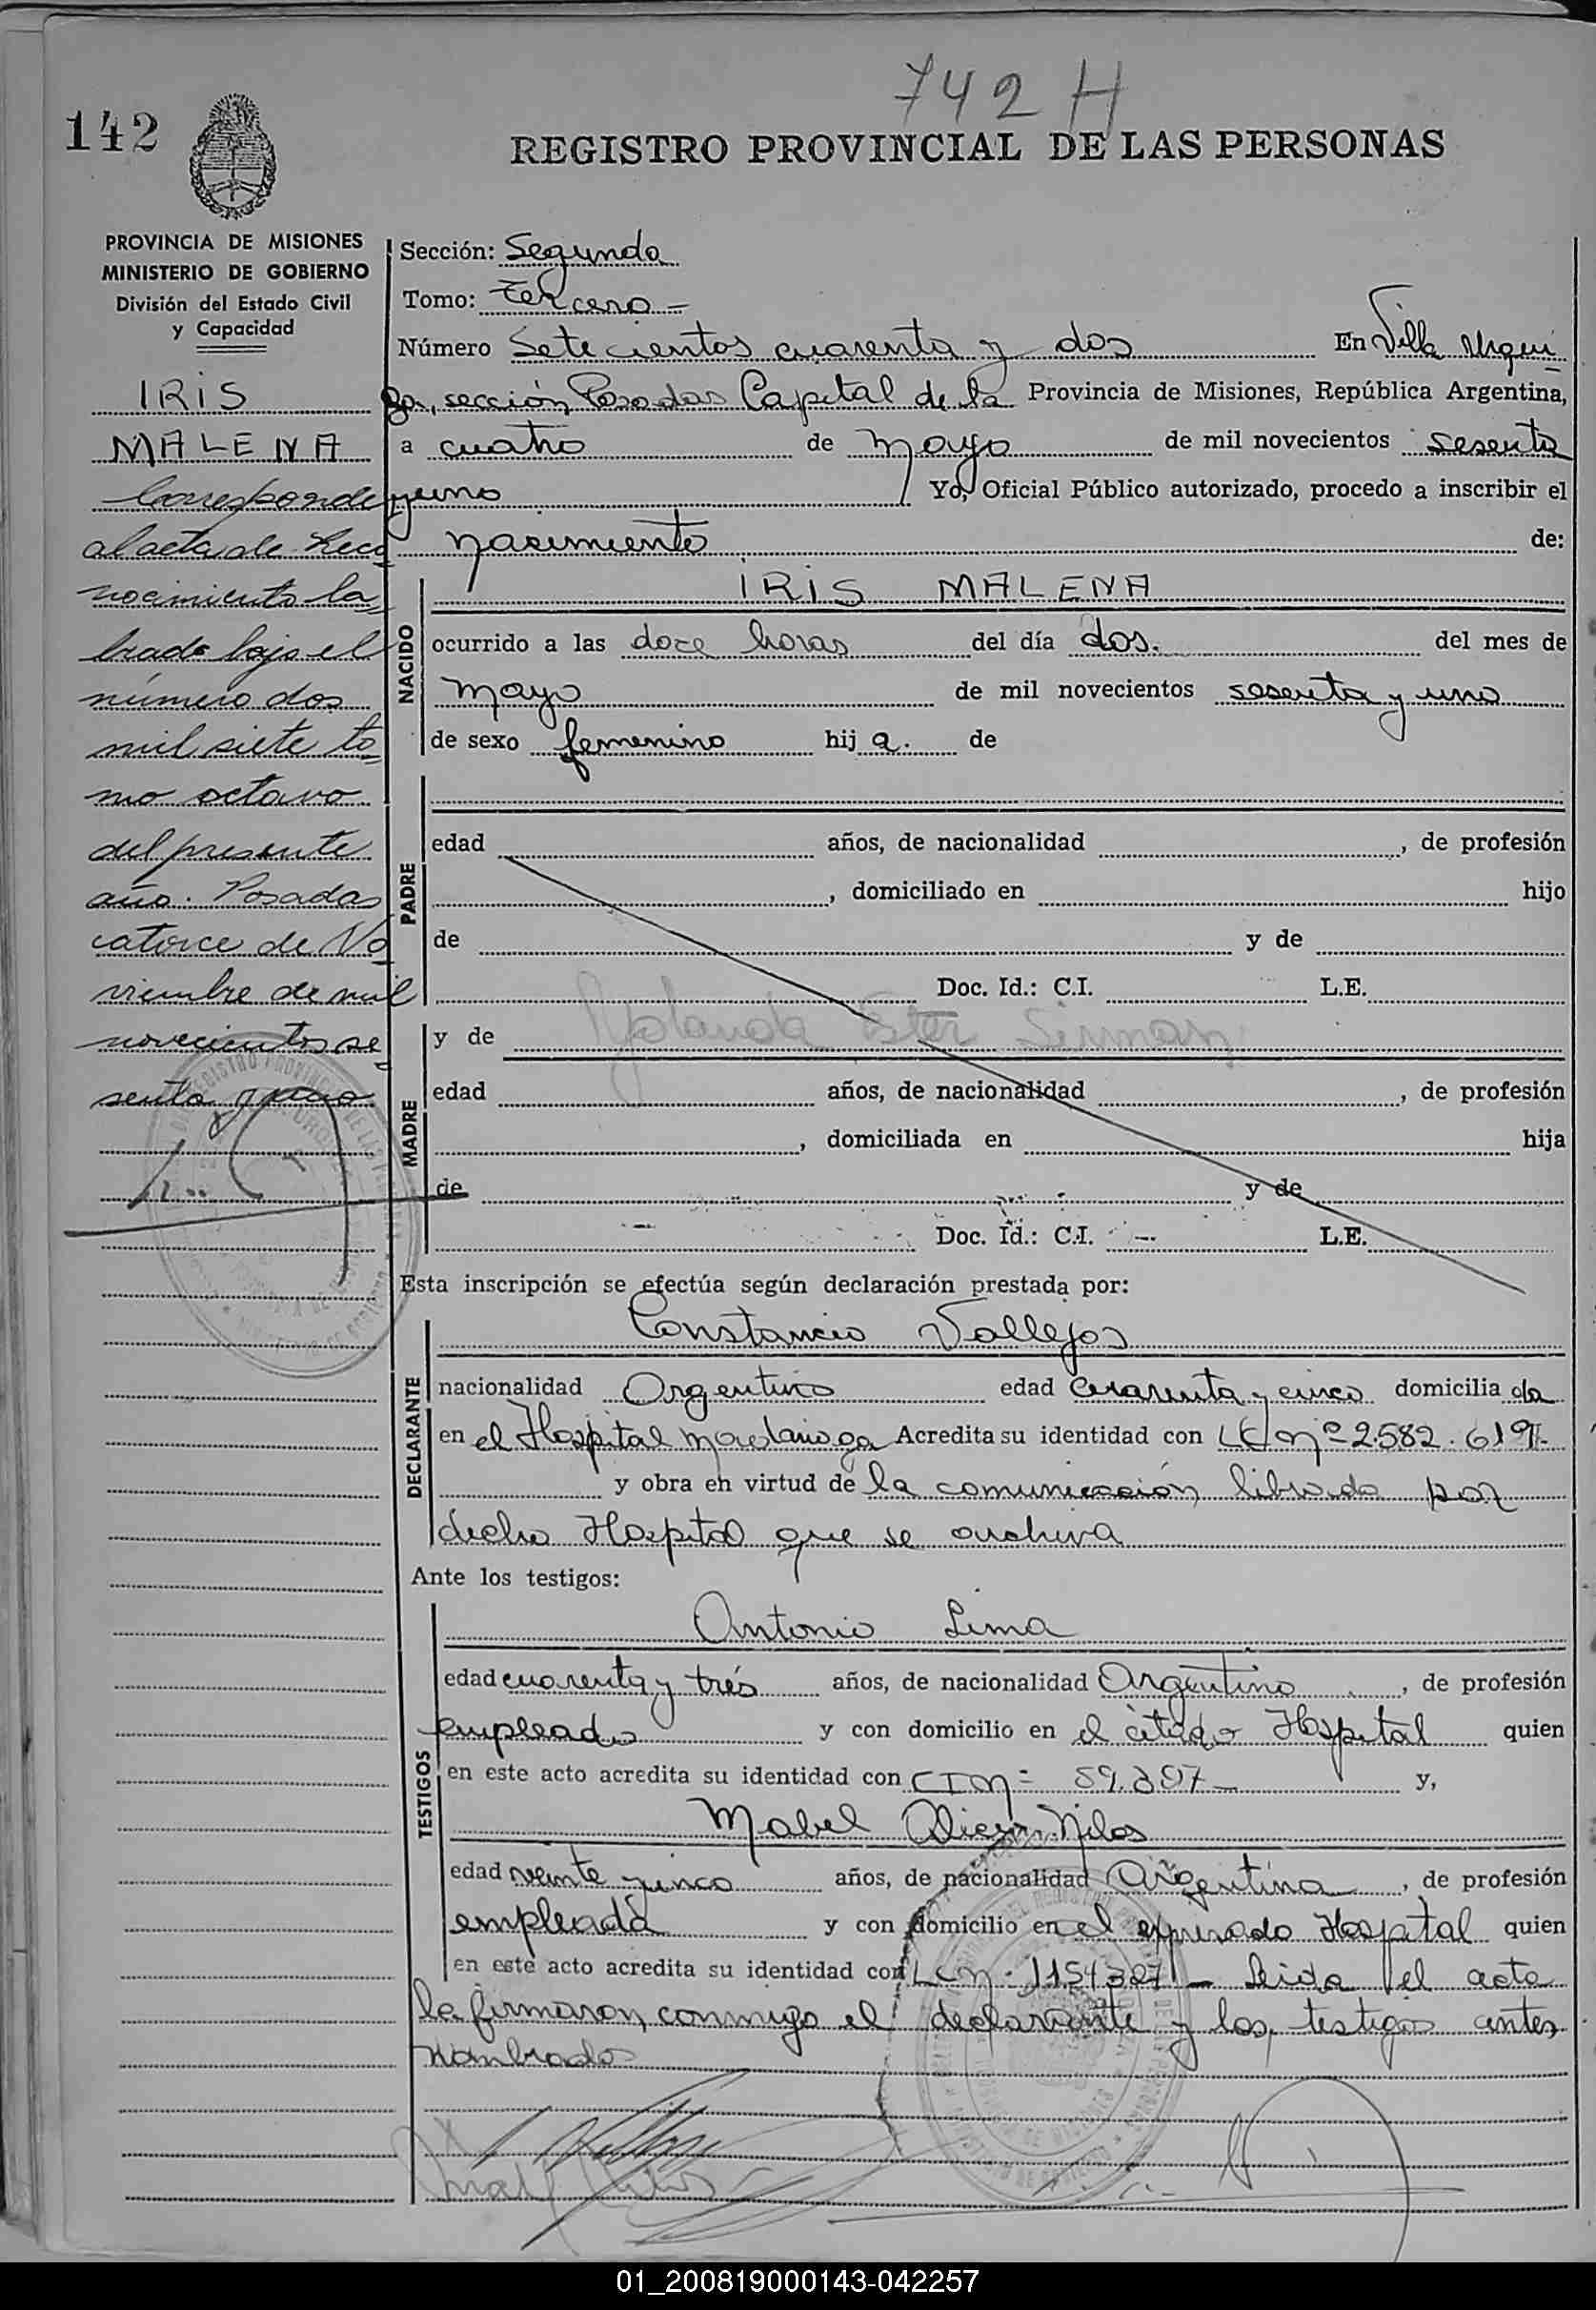 742 H
142
REGISTRO PROVINCIAL DE LAS PERSONAS
PROVINCIA DE MISIONES
MINISTERIO DE GOBIERNO
División del Estado Civil
y Capacidad
IRIS
MALENA
Corresponde
al acta de Reco
nocimiento la
brado bajo el
número dos
mil siete to
mo octavo
del presente
año. Posadas
catorce de No
viembre de mil
novecientos se
senta y uno
Sección: Segunda
Tomo: tercero
Número Setecientos cuarenta y dos En Villa Urqui
za, sección Posadas Capital de la Provincia de Misiones, República Argentina,
a cuatro de mayo de mil novecientos sesenta
y uno Yo, Oficial Público autorizado, procedo a inscribir el
nacimiento de:
IRIS MALENA
NACIDO
ocurrido a las doce horas del día dos. del mes de
mayo de mil novecientos sesenta y uno
de sexo femenino hij a. de
PADRE
edad años, de nacionalidad , de profesión
, domiciliado en hijo
de y de
Doc. Id.: C.I. L.E.
MADRE
y de Yolanda Ester
edad años, de nacionalidad , de profesión
, domiciliada en hija
de y de
Doc. Id.: C.I. L.E.
Esta inscripción se efectúa según declaración prestada por:
Constancio Vallejos
DECLARANTE
nacionalidad Argentino edad cuarenta y cinco domicilia da
en el Hospital Madariaga Acredita su identidad con Nº 2.582.619
y obra en virtud de la comunicación librada por
dicho Hospital que se archiva
Ante los testigos:
TESTIGOS
Antonio Lima
edad cuarenta y trés años, de nacionalidad Argentino , de profesión
empleado y con domicilio en el citado Hospital quien
en este acto acredita su identidad con CI Nº y,
Mabel Alicia
edad veinte y cinco años, de nacionalidad Argentina , de profesión
empleada y con domicilio en el expresado Hospital quien
en este acto acredita su identidad con LC Nº 1154327 - Leida el acta
la firmaron conmigo el declarante y los testigos antes
nombrados
01_200819000143-042257